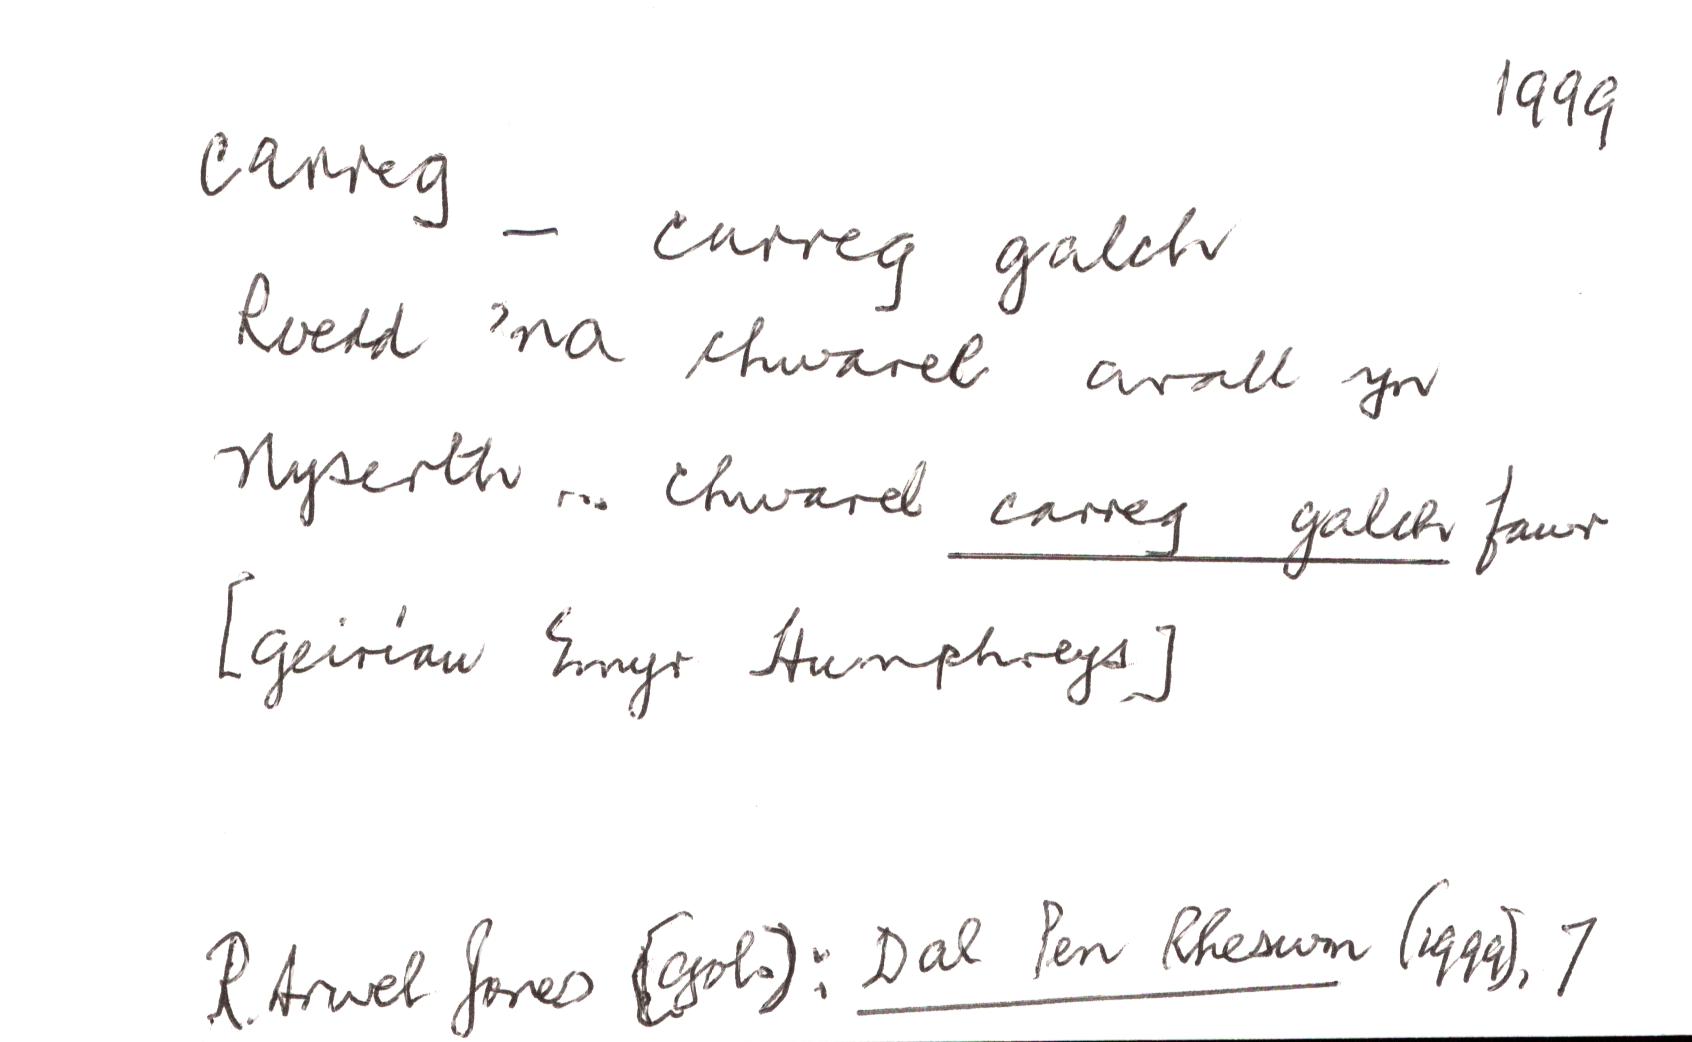 1999
carreg
– carreg galch
Roedd 'na chwarel arall yn
Nyserth ... chwarel carreg galch fawr
[geiriau Emyr Humphreys]
R. Arwel Jones (gol.): Dal Pen Rheswm (1999), 7